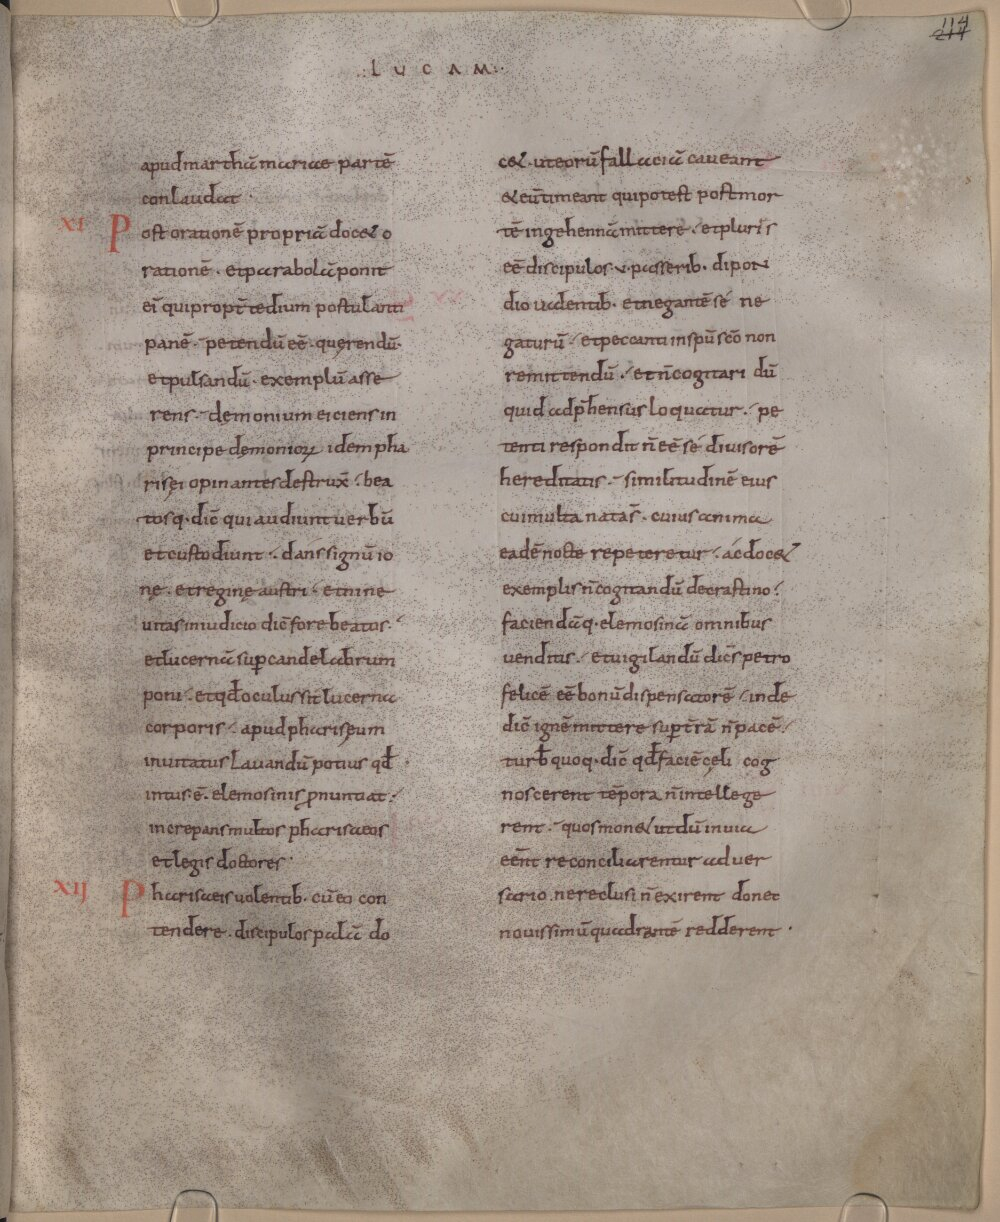 114
·: LUCAM :·
apud marthā mariae partē
conlaudat ·
XI Post orationē propriā docet o
rationē · et parabolā ponit
eī qui propt̄ tedium postulanti
panē · petendū eē · querendū ·
et pulsandū · exemplū asse
rens · demonium eiciens in
principe demonioꝝ idem pha
risei opinantes destrux̄ · bea
tosq· dic̄ qui audiunt uerbū
et custodiunt · dans signū io
nę · et reginę austri · et nine
uitas in iudicio dic̄ fore beatos ·
et lucernā suꝑ candelabrum
poni · et qd̄ oculus sit lucerna
corporis · apud phariseum
inuitatus lauandū potius qd̄
intus ē · elemosinis ꝓnuntiat ·
increpans multos pharisaeos
et legis doctores ·
XIJ Pharisaeis uolentib· cū eo con
tendere · discipulos palā do
cet · ut eorū fallaciā caueant
et eū timeant qui potest post mor
tē in gehennā mittere · et pluris
eē discipulos · v · passerib· dipon
dio uadentib· et negantē se ne
gaturū · et peccanti in spū sc̄o non
remittendū · et n̄ cogitari dū
quid adp̄hensus loquatur · pe
tenti respondit n̄ eē se diuisorē
hereditatis · similitudinē eius
cui multa nata s̄ · cuius anima
eadē nocte repeteretur · ac docet
exemplis n̄ cogitandū de crastino ·
faciendāq· elemosinā omnibus
uenditis · et uigilandū dic̄s petro
felicē eē bonū dispensatorē · inde
dic̄ ignē mittere suꝑ t̄rā n̄ pacē ·
turb̄ quoq· dic̄ qd̄ faciē cęli cog
noscerent tēpora n̄ intellege
rent · quos monet ut dū in uia
eēnt reconciliarentur aduer
sario · ne reclusi n̄ exirent donec
nouissimū quadrantē redderent ·